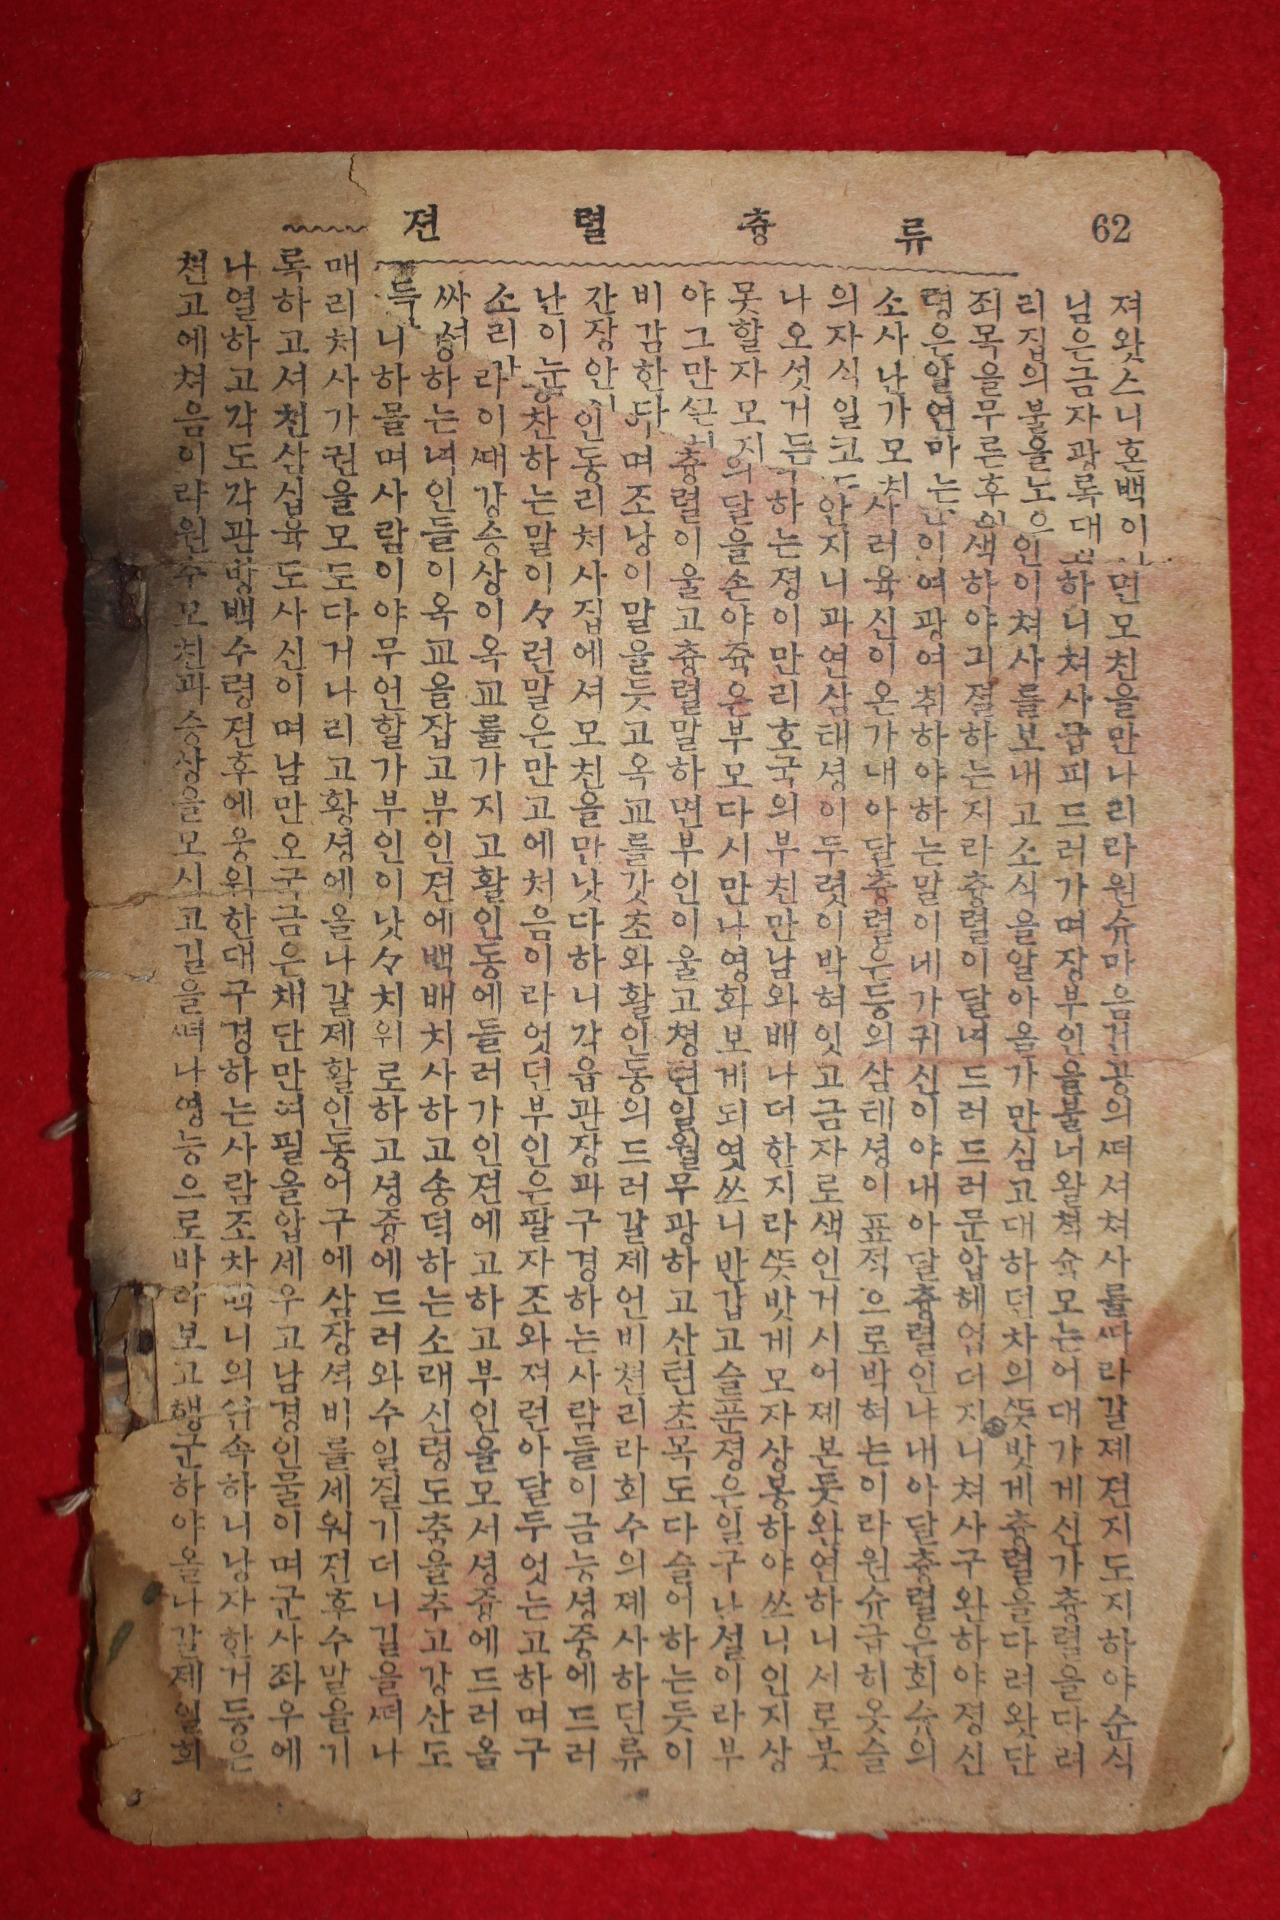 62
류츙렬젼
져왓스니혼백이 면모친을만나리라원슈마음건공의떠셔쳐사를따라갈졔젼지도지하야순식
님은금자광록대 하니쳐사급피드러가며장부인을불너왈쳑슉모는어대가계신가츙렬을다려
리집의불을노 인이쳐사를보내고소식을알아올가만심고대하던차의뜻밧게츙렬을다려왓단
죄목을무른후 색하야긔졀하는지라츙렬이달녀드러드러문압헤업더지니쳐사구완하야졍신
령은알연마는 이여광여취하야하는말이네가귀신이야내아달츙렬인냐내아달츙렬은회슈의
소사난가모 사러육신이온가내아달츙렬은등의삼태셩이표젹으로박혀는이라원슈급히옷슬
의자식일 안지니과연삼태셩이두렷이박혀잇고금자로색인거시어졔본듯완연하니서로붓
나오셧거 하는졍이만리호국의부친만남와배나더한지라뜻밧게모자상봉하야쓰니인지상
못할자모 의달을손야쥭은부모다시만나영화보게되엿쓰니반갑고슬푼졍은일구난셜이라부
야그만 츙렬이울고츙렬말하면부인이울고쳥텬일월무광하고산텬초목도다슬어하는듯이
비감한 며조낭이말을듯고옥교를갓초와활인동의드러갈졔언비쳔리라회수의졔사하던류
잔장안 인동리쳐사집에셔모친을만낫다하니각읍관장과구경하는사람들이금능셩중에드러
난이 찬하는말이々런말은만고에처음이라엇던부인은팔자조와져런아달두엇는고하며구
소리 라이때강승상이옥교를가지고활인동에들러가인젼에고하고부인을모셔셩즁에드러올
싸셩 하는녀인들이옥교을잡고부인젼에백배치사하고송덕하는소래신령도춤을추고강산도
득 니하믈며사람이야무언할가부인이낫々치위로하고셩즁에드러와수일질기더니길을떠나
매리쳐사가권을모도다거나리고황셩에올나갈졔활인동어구에삼장셕비를세워젼후수말을기
록하고셔쳔삼십육도사신이며남만오국금은채단만여필을압세우고남경인물이며군사좌우에
나열하고각도각관방백수령젼후에옹위한대구경하는사람조차 니의 속하니낭자한거동은
쳔고에쳐음이라원수모친과승상을모시고길을떠나영능으로바라보고행군하야올나갈졔일희